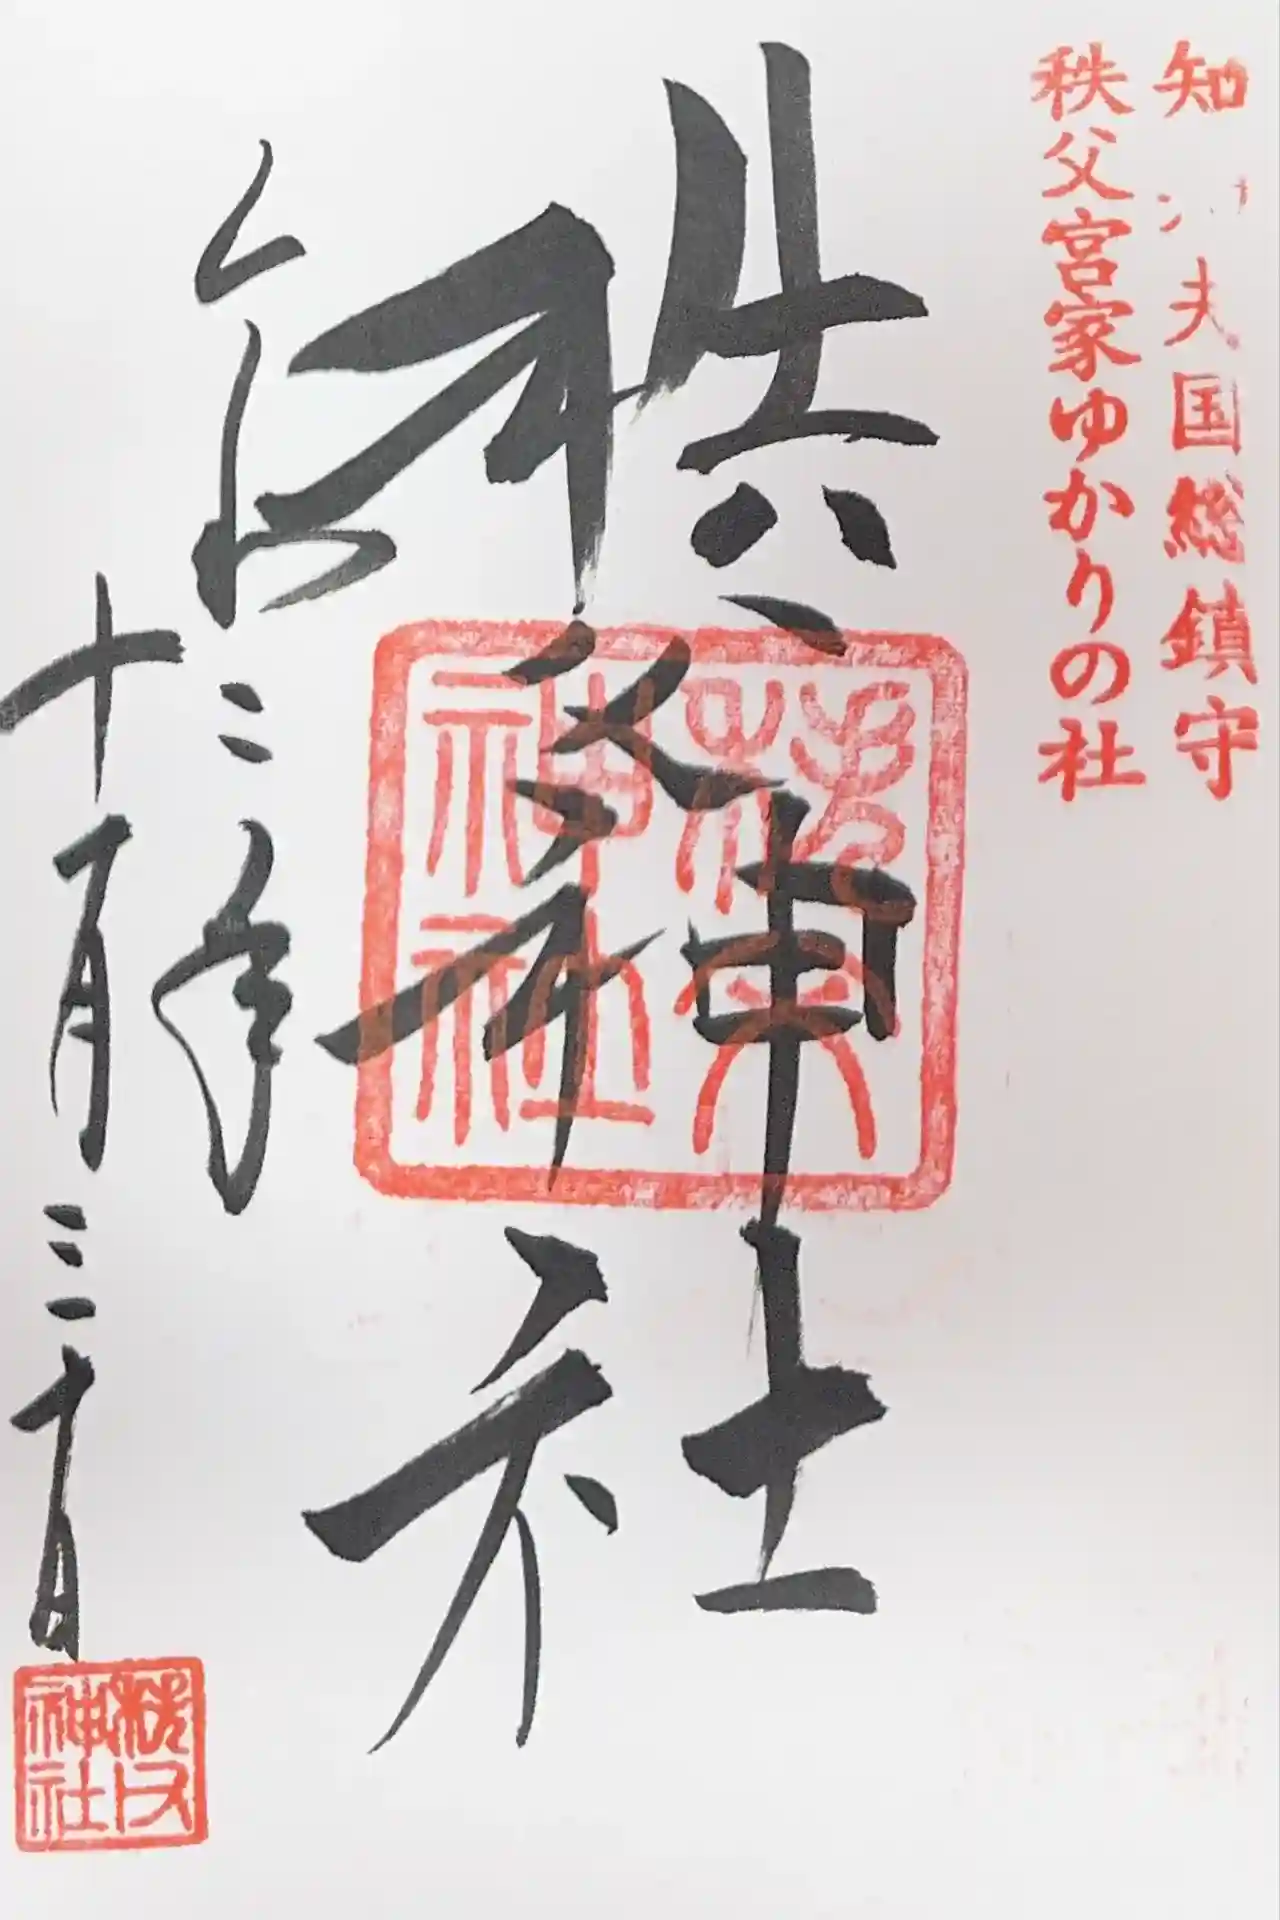 知 夫国総鎮守
秩父宮家ゆかりの社
秩父神社
秩父
神社
令和二年
十月三十日
秩父
神社